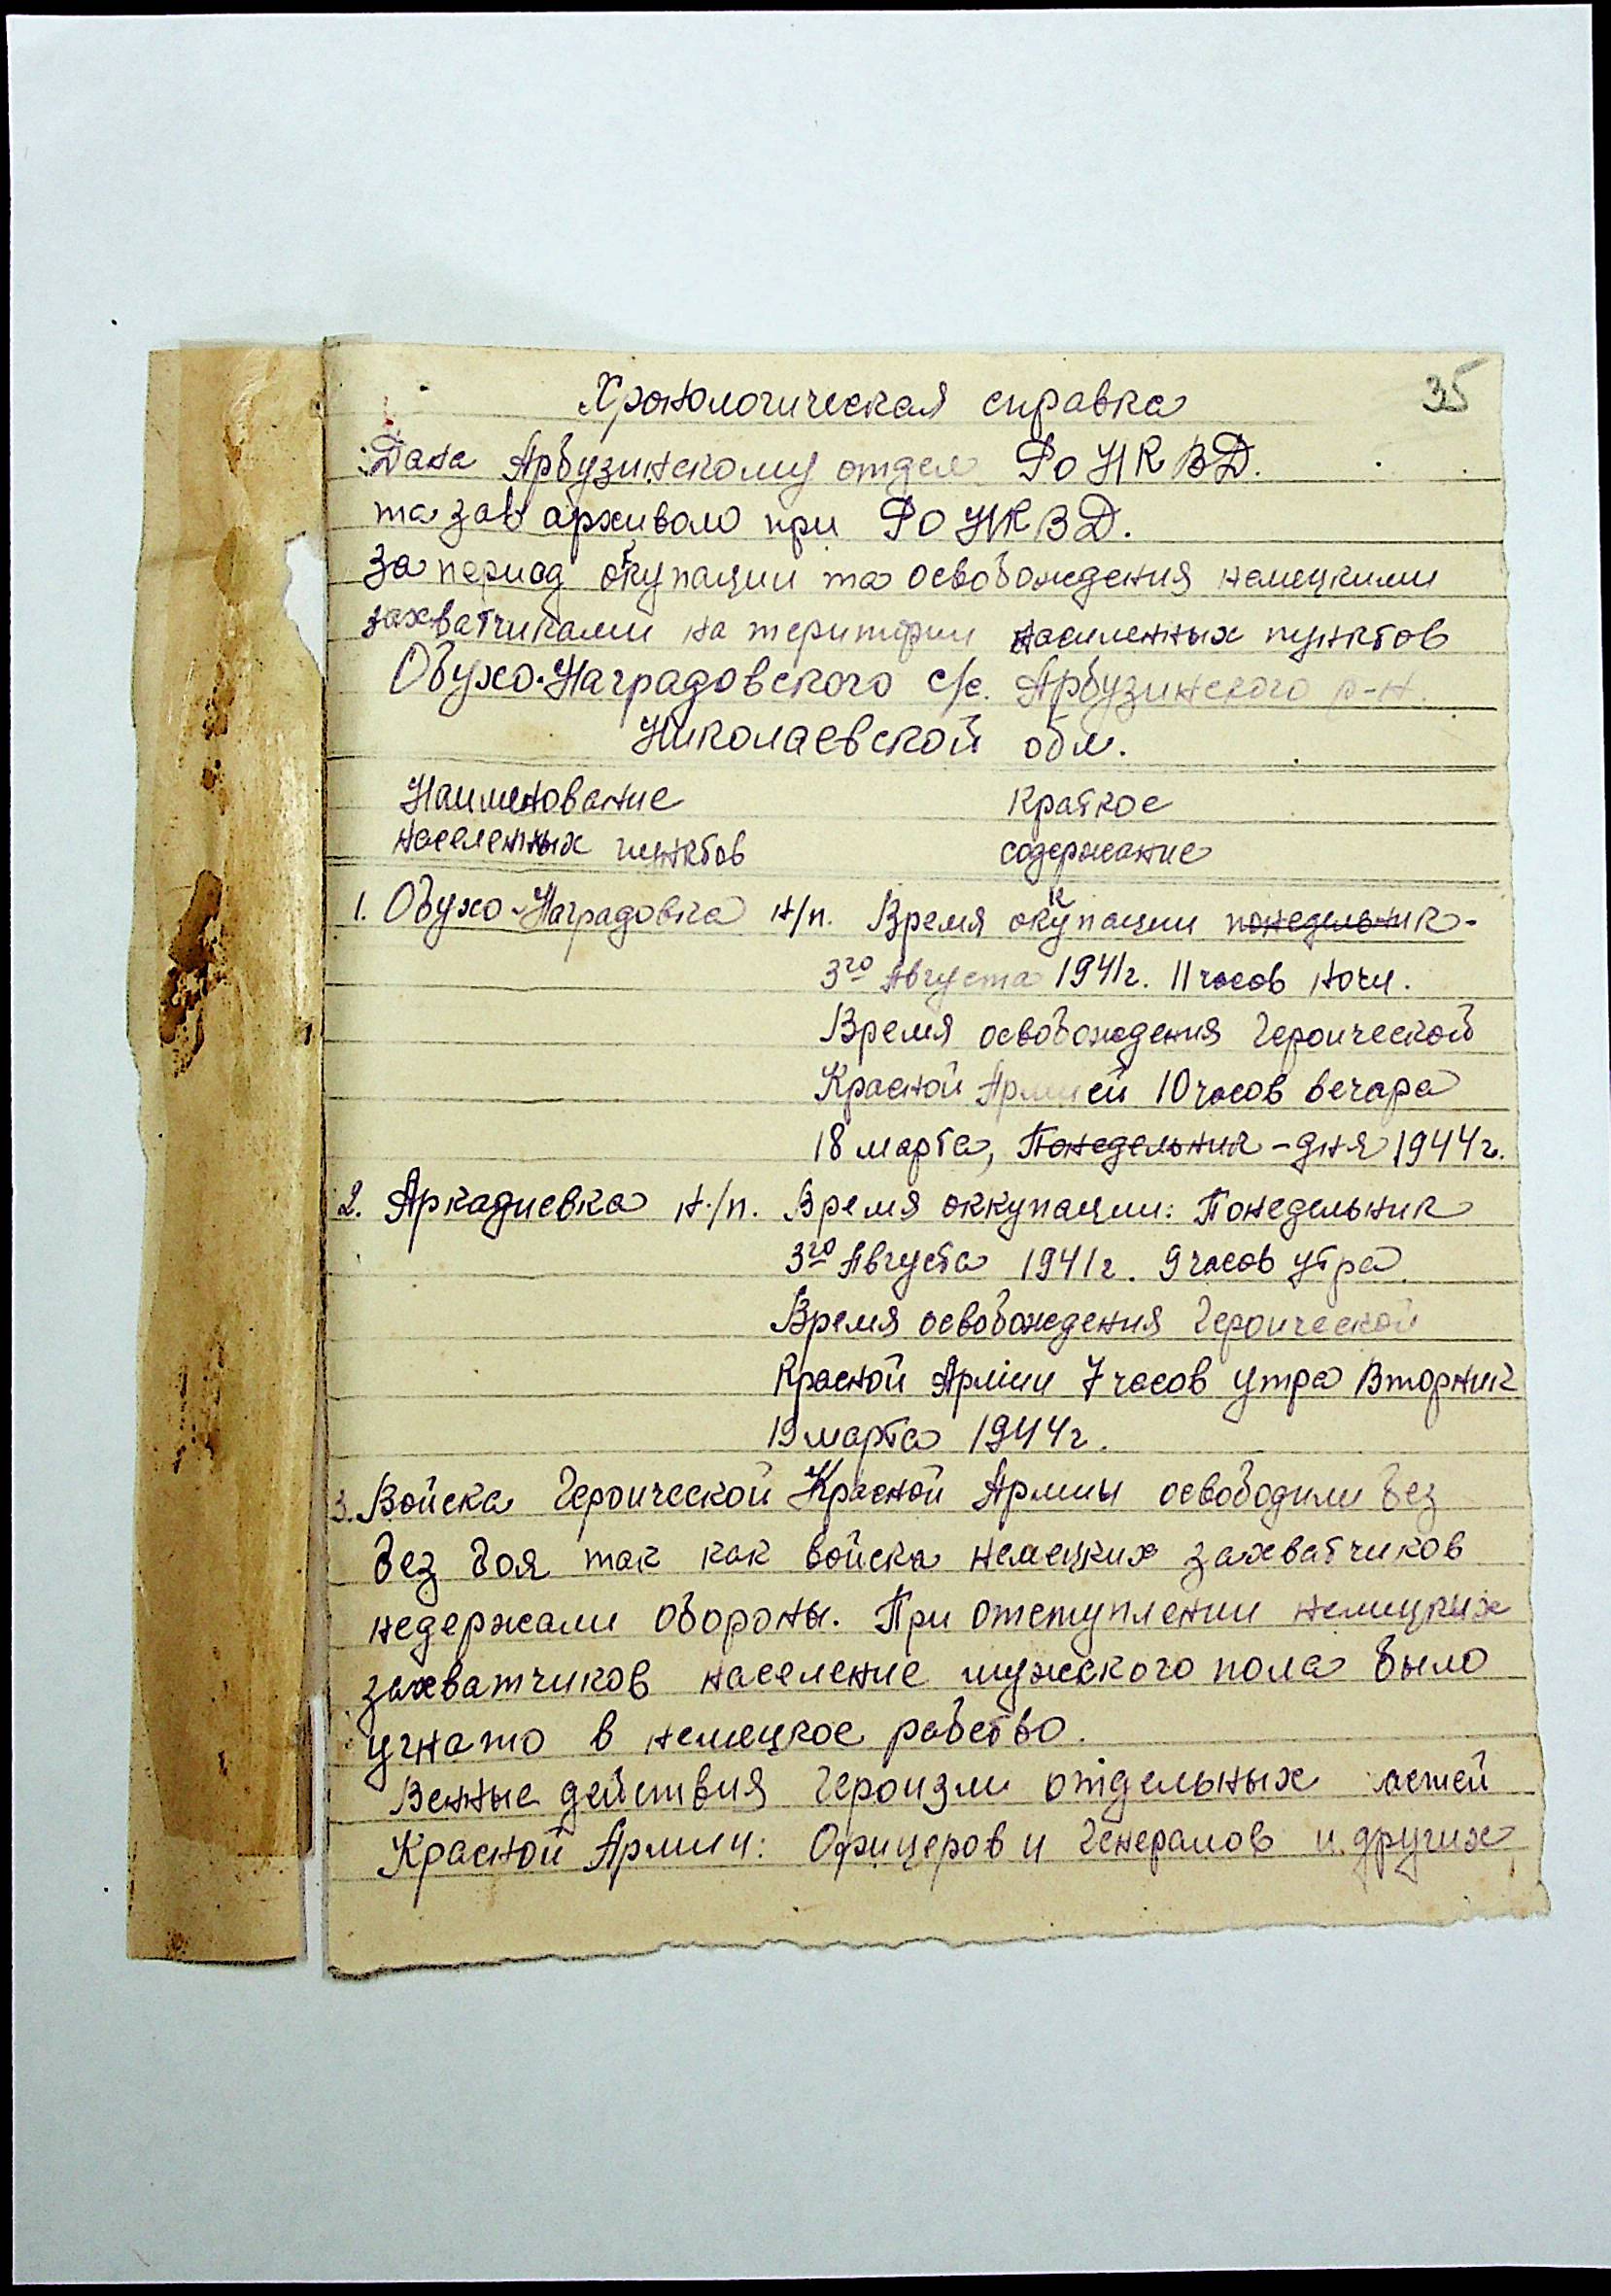 35
Хронологическая справка
Дана Арбузинскому отдел РО НКВД.
та зав архивом при РО НКВД.
За период окупации та освобождения немецкими
захватчиками на територии населенных пунктов
Обухо-Наградовского с/с. Арбузинского р-н.
Николаевской обл.
Наименование Краткое
населенных пунктов содержание
1. Обухо-Наградовка н/п. Время оккупации понедельник-
3го Августа 1941г. 11 часов ночи.
Время освобождения Героической
Красной Армией 10 часов вечара
18 марта, Понедельник - дня 1944г.
2. Аркадиевка н/п. Время оккупации: Понедельник
3го Августа 1941г. 9 часов утра.
Время освобождения Героической
Красной Армии 7 часов утра Вторник
19 марта 1944г.
3. Войска Героической Красной Армиы освободили без
без боя так как войска немецких захватчиков
недержали обороны. При отступлении немецких
захватчиков население мужского пола было
угнато в немецкое рабство.
Венные действия Героизм отдельных частей
Красной Армии: Офицеров и Генералов и других